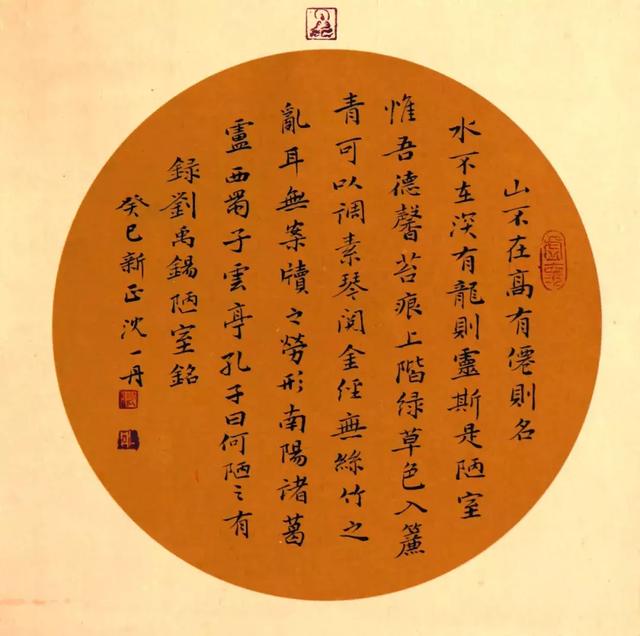 山不在高有僊則名
水不在深有龍則靈斯是陋室
惟吾德馨苔痕上階緑草色入簾
青可以調素琴閲金經無絲竹之
亂耳無案牘之勞形南陽諸葛
盧西蜀子雲亭孔子曰何陋之有
録劉禹錫陋室銘
癸巳新正沈一丹